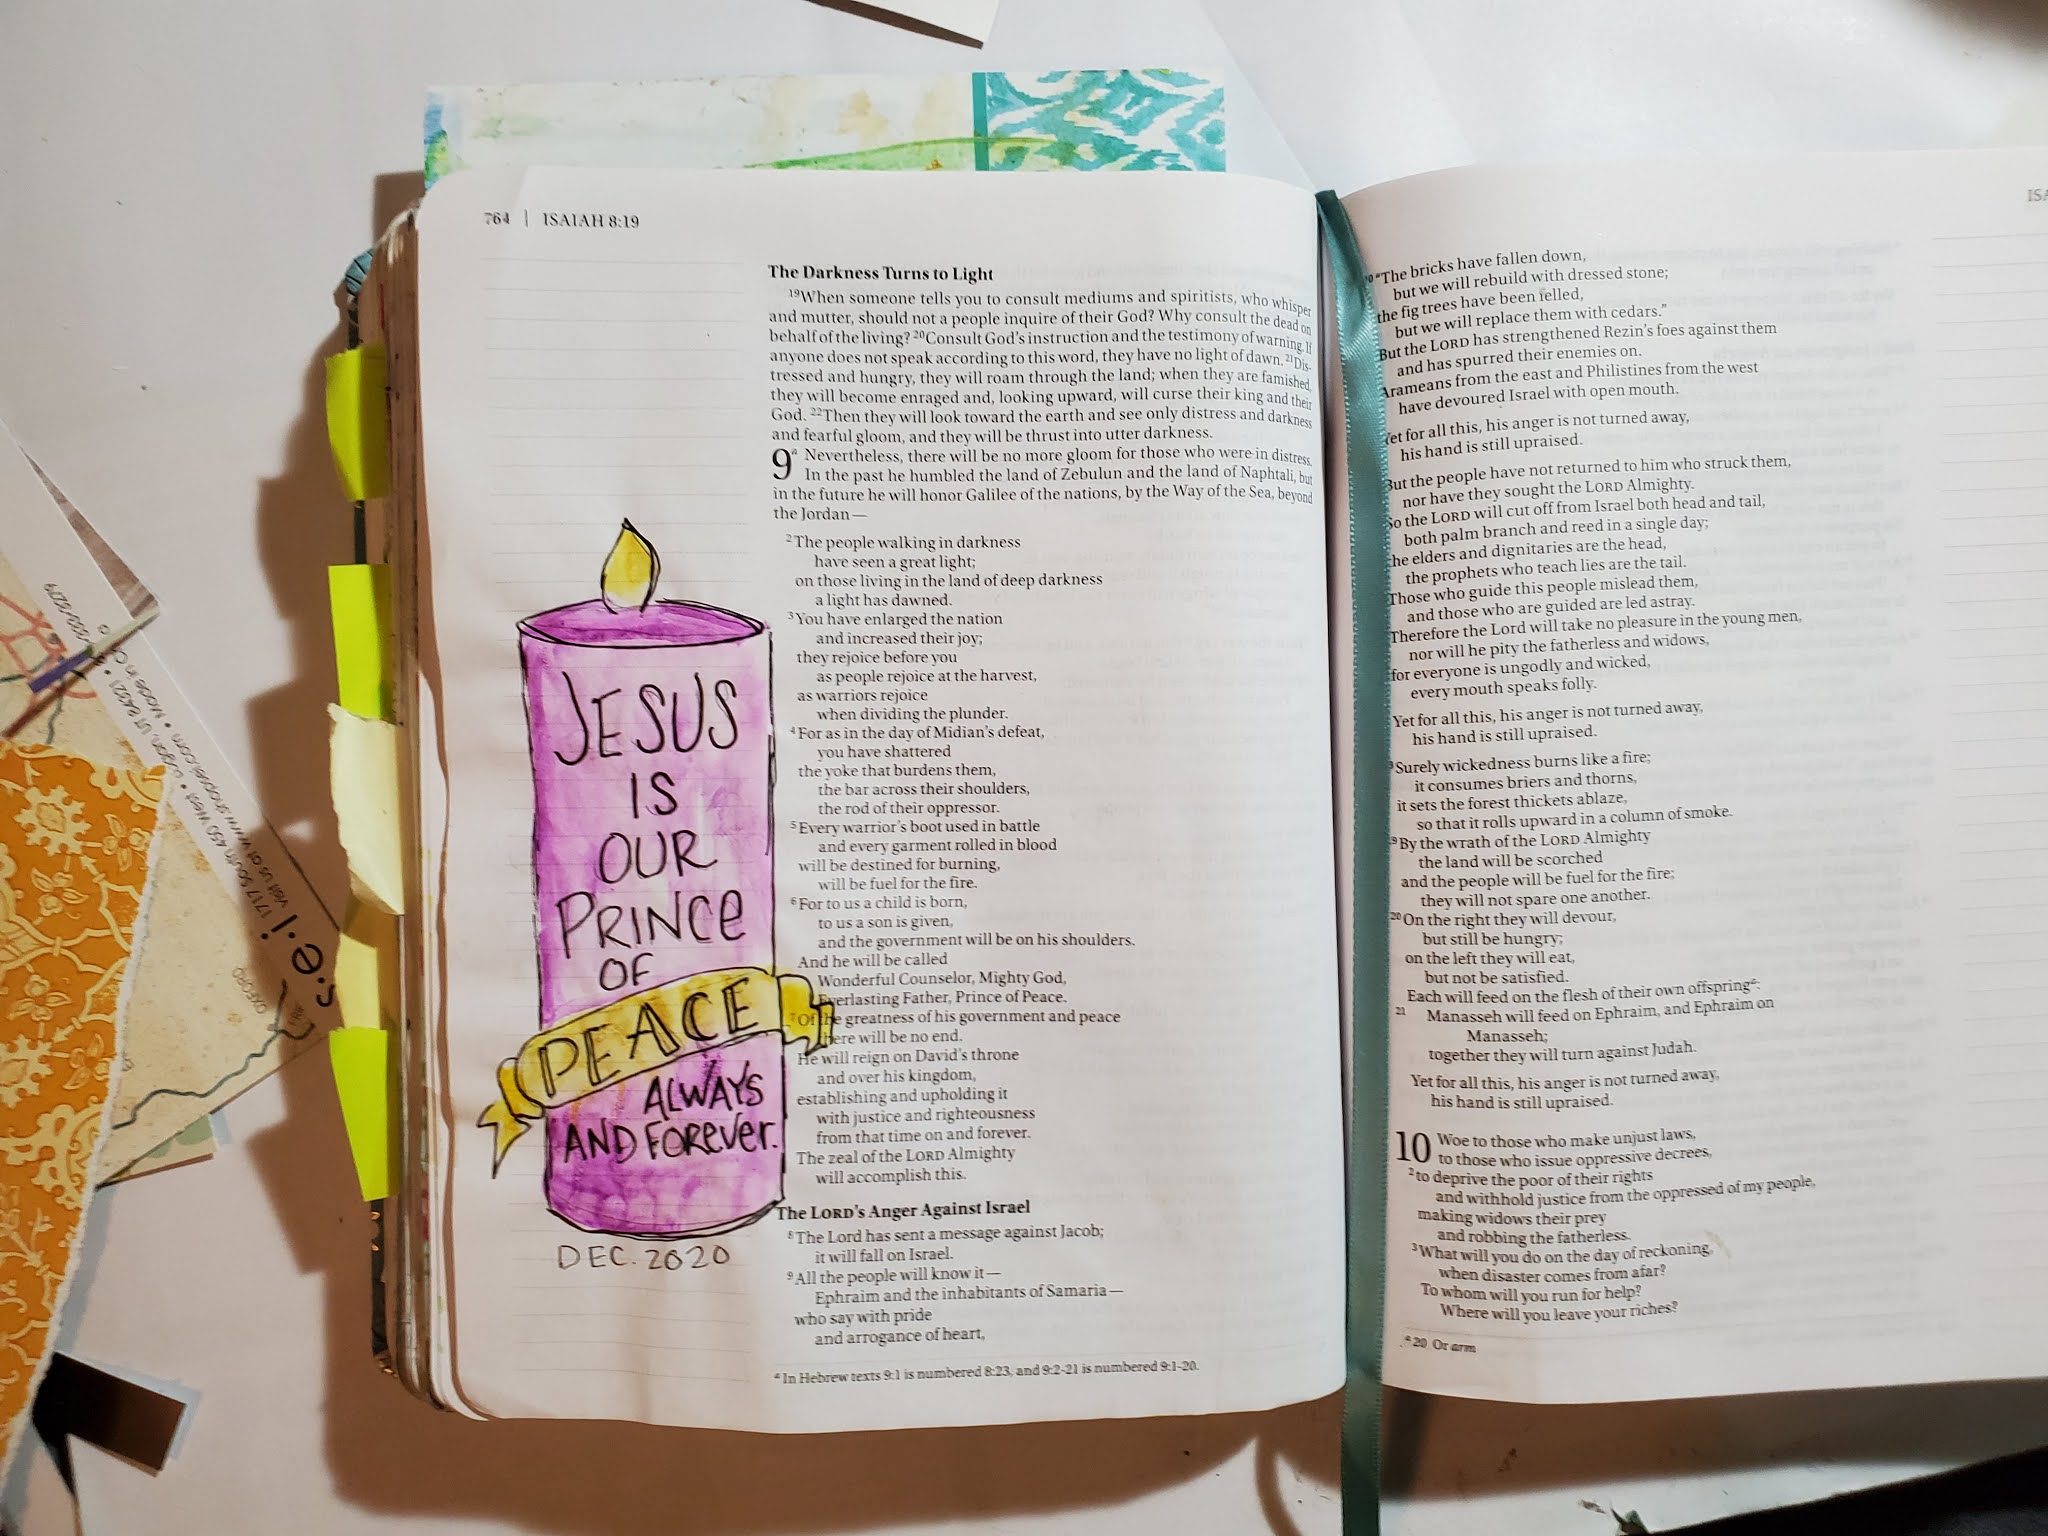 764 | ISAIAH 8:19
JESUS
IS
OUR
PRINCE
OF
PEACE
ALWAYS
AND FOREVER.
DEC. 2020
The Darkness Turns to Light
19When someone tells you to consult mediums and spiritists, who whisper
and mutter, should not a people inquire of their God? Why consult the dead on
behalf of the living? 20Consult God's instruction and the testimony of warning. If
anyone does not speak according to this word, they have no light of dawn. 21Dis-
tressed and hungry, they will roam through the land; when they are famished,
they will become enraged and, looking upward, will curse their king and their
God. 22Then they will look toward the earth and see only distress and darkness
and fearful gloom, and they will be thrust into utter darkness.
9a Nevertheless, there will be no more gloom for those who were in distress.
In the past he humbled the land of Zebulun and the land of Naphtali, but
in the future he will honor Galilee of the nations, by the Way of the Sea, beyond
the Jordan—
2The people walking in darkness
have seen a great light;
on those living in the land of deep darkness
a light has dawned.
3You have enlarged the nation
and increased their joy;
they rejoice before you
as people rejoice at the harvest,
as warriors rejoice
when dividing the plunder.
4For as in the day of Midian's defeat,
you have shattered
the yoke that burdens them,
the bar across their shoulders,
the rod of their oppressor.
5Every warrior's boot used in battle
and every garment rolled in blood
will be destined for burning,
will be fuel for the fire.
6For to us a child is born,
to us a son is given,
and the government will be on his shoulders.
And he will be called
Wonderful Counselor, Mighty God,
Everlasting Father, Prince of Peace.
7Of the greatness of his government and peace
there will be no end.
He will reign on David's throne
and over his kingdom,
establishing and upholding it
with justice and righteousness
from that time on and forever.
The zeal of the LORD Almighty
will accomplish this.
The LORD's Anger Against Israel
8The Lord has sent a message against Jacob;
it will fall on Israel.
9All the people will know it—
Ephraim and the inhabitants of Samaria—
who say with pride
and arrogance of heart,
a In Hebrew texts 9:1 is numbered 8:23, and 9:2-21 is numbered 9:1-20.
"The bricks have fallen down,
but we will rebuild with dressed stone;
the fig trees have been felled,
but we will replace them with cedars."
But the LORD has strengthened Rezin's foes against them
and has spurred their enemies on.
Arameans from the east and Philistines from the west
have devoured Israel with open mouth.
Yet for all this, his anger is not turned away,
his hand is still upraised.
But the people have not returned to him who struck them,
nor have they sought the LORD Almighty.
So the LORD will cut off from Israel both head and tail,
both palm branch and reed in a single day;
the elders and dignitaries are the head,
the prophets who teach lies are the tail.
Those who guide this people mislead them,
and those who are guided are led astray.
Therefore the Lord will take no pleasure in the young men,
nor will he pity the fatherless and widows,
for everyone is ungodly and wicked,
every mouth speaks folly.
Yet for all this, his anger is not turned away,
his hand is still upraised.
Surely wickedness burns like a fire;
it consumes briers and thorns,
it sets the forest thickets ablaze,
so that it rolls upward in a column of smoke.
9By the wrath of the LORD Almighty
the land will be scorched
and the people will be fuel for the fire;
they will not spare one another.
20On the right they will devour,
but still be hungry;
on the left they will eat,
but not be satisfied.
Each will feed on the flesh of their own offspringa:
21 Manasseh will feed on Ephraim, and Ephraim on
Manasseh;
together they will turn against Judah.
Yet for all this, his anger is not turned away,
his hand is still upraised.
10 Woe to those who make unjust laws,
to those who issue oppressive decrees,
2to deprive the poor of their rights
and withhold justice from the oppressed of my people,
making widows their prey
and robbing the fatherless.
3What will you do on the day of reckoning,
when disaster comes from afar?
To whom will you run for help?
Where will you leave your riches?
a 20 Or arm
s.e.i
OXFORD